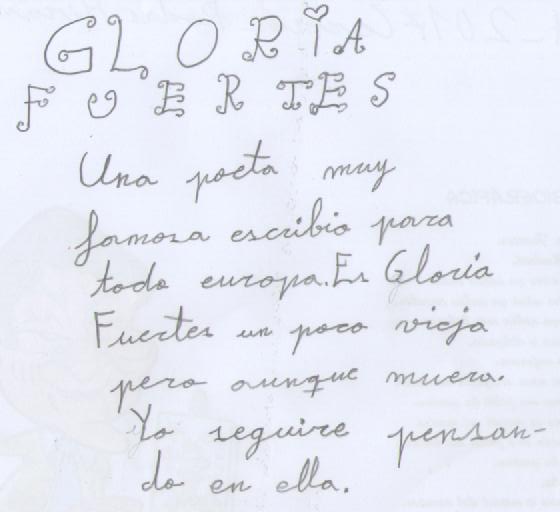 GLORIA
FUERTES
Una poeta muy
famosa escribio para
todo europa. Es Gloria
Fuertes un poco vieja
pero aunque muera.
Yo seguire pensan-
do en ella.